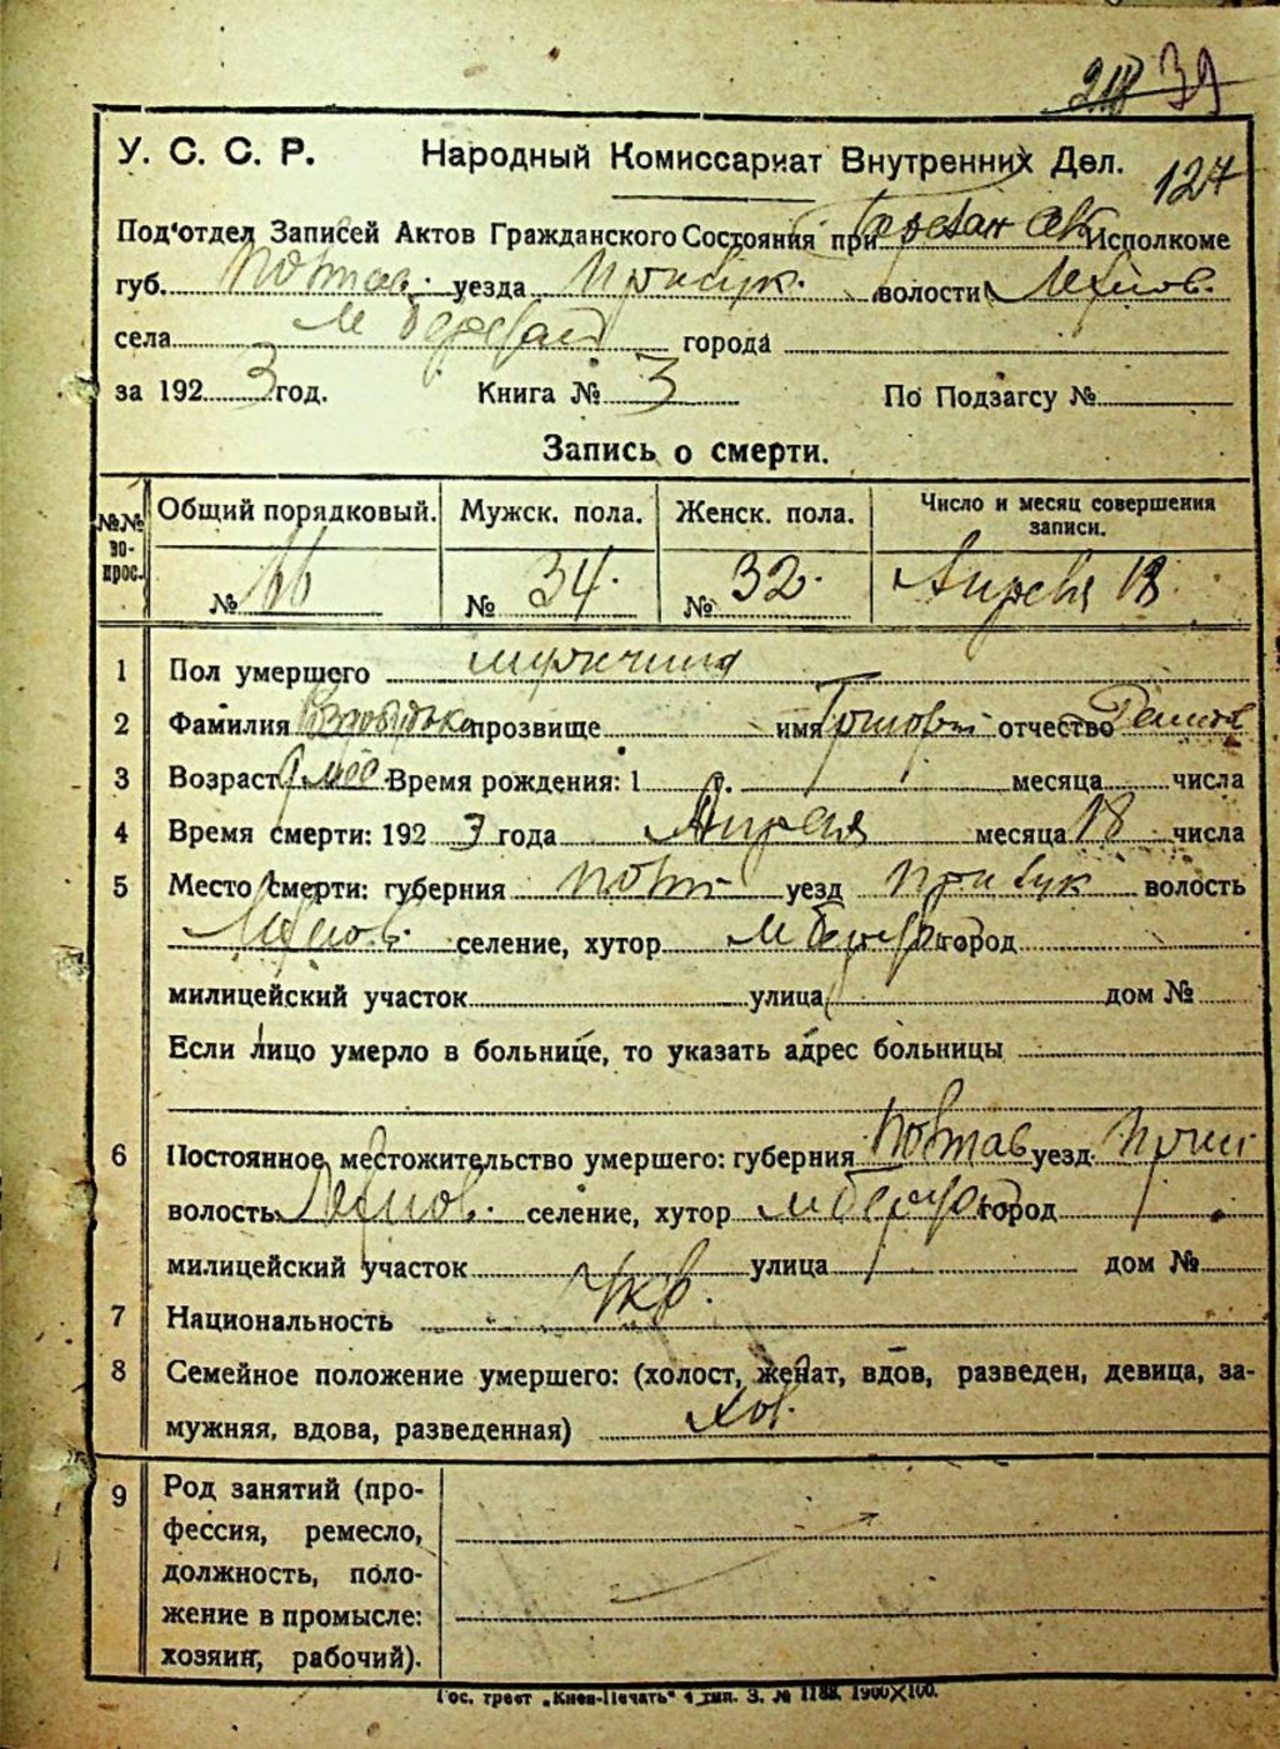 39
У. С. С. Р. Народный Комиссариат Внутренних Дел.
127
Под'отдел Записей Актов Гражданского Состояния при Исполкоме
губ. Полтав. уезда Прилук. волости
села м города
за 192 3 год. Книга № 3 По Подзагсу №
Запись о смерти.
№№ во-прос. Общий порядковый. Мужск. пола. Женск. пола. Число и месяц совершения записи.
№ 66 № 34. № 32. Апреля 18
1 Пол умершего мужчина
2 Фамилия прозвище имя Григорий отчество
3 Возраст Время рождения: 1 г. месяца числа
4 Время смерти: 192 3 года Апреля месяца 18 числа
5 Место смерти: губерния Полт уезд Прилук волость
селение, хутор м город
милицейский участок улица дом №
Если лицо умерло в больнице, то указать адрес больницы
6 Постоянное местожительство умершего: губерния Полтав уезд Прил
волость селение, хутор м город
милицейский участок улица дом №
7 Национальность Укр.
8 Семейное положение умершего: (холост, женат, вдов, разведен, девица, за-
мужняя, вдова, разведенная) хол.
9 Род занятий (про-
фессия, ремесло,
должность, поло-
жение в промысле:
хозяин, рабочий).
Гос. трест „Киев-Печать" 4 тип. З. № 1188. 1900×100.